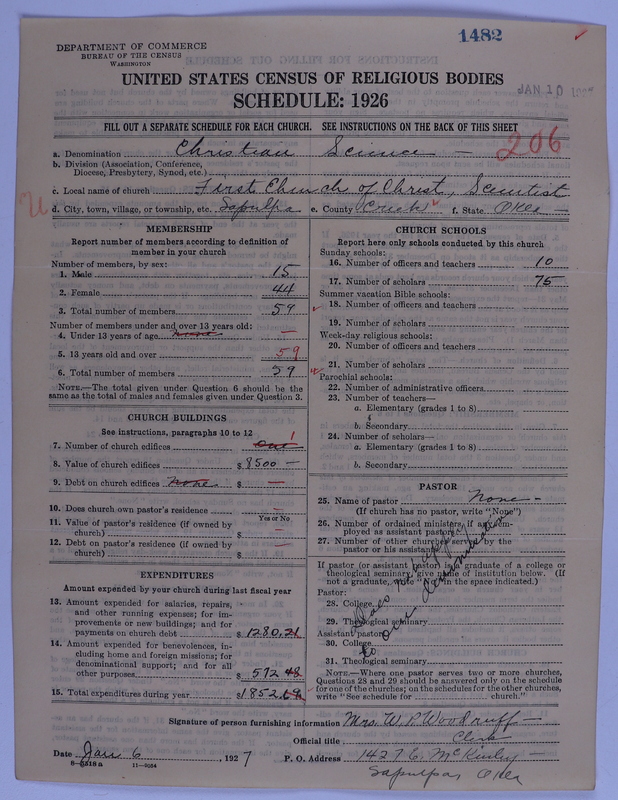 1482
DEPARTMENT OF COMMERCE
BUREAU OF THE CENSUS
WASHINGTON
UNITED STATES CENSUS OF RELIGIOUS BODIES
SCHEDULE: 1926
JAN 10 1927
FILL OUT A SEPARATE SCHEDULE FOR EACH CHURCH. SEE INSTRUCTIONS ON THE BACK OF THIS SHEET
206
a. Denomination Christian Science —
b. Division (Association, Conference,
Diocese, Presbytery, Synod, etc.)
c. Local name of church First Church of Christ, Scientist
d. City, town, village, or township, etc. Sapulpa e. County Creek f. State Okla
MEMBERSHIP
Report number of members according to definition of
member in your church
Number of members, by sex:
1. Male 15
2. Female 44
3. Total number of members 59
Number of members under and over 13 years old:
4. Under 13 years of age none —
5. 13 years old and over 59
6. Total number of members 59
NOTE.—The total given under Question 6 should be the
same as the total of males and females given under Question 3.
CHURCH BUILDINGS
See instructions, paragraphs 10 to 12
7. Number of church edifices one 1
8. Value of church edifices $ 8500 —
9. Debt on church edifices none $ —
10. Does church own pastor's residence —
Yes or No
11. Value of pastor's residence (if owned by
church) $ —
12. Debt on pastor's residence (if owned by
church) $ —
EXPENDITURES
Amount expended by your church during last fiscal year
13. Amount expended for salaries, repairs,
and other running expenses; for im-
provements or new buildings; and for
payments on church debt $ 1280.21
14. Amount expended for benevolences, in-
cluding home and foreign missions; for
denominational support; and for all
other purposes 572 48
15. Total expenditures during year $ 1852 69
CHURCH SCHOOLS
Report here only schools conducted by this church
Sunday schools:
16. Number of officers and teachers 10
17. Number of scholars 75
Summer vacation Bible schools:
18. Number of officers and teachers
19. Number of scholars
Week-day religious schools:
20. Number of officers and teachers
21. Number of scholars
Parochial schools:
22. Number of administrative officers
23. Number of teachers—
a. Elementary (grades 1 to 8)
b. Secondary
24. Number of scholars—
a. Elementary (grades 1 to 8)
b. Secondary
PASTOR
25. Name of pastor None —
(If church has no pastor, write "None")
26. Number of ordained ministers, if any, em-
ployed as assistant pastors
27. Number of other churches served by the
pastor or his assistants
If pastor (or assistant pastor) is graduate of a college or
theological seminary, give name of institution below. (If
not a graduate, write "No" in the space indicated.)
Does not apply
to our denomination
Pastor:
28. College
29. Theological seminary
Assistant pastor:
30. College
31. Theological seminary
NOTE.—Where one pastor serves two or more churches,
Questions 28 and 29 should be answered only on the schedule
for one of the churches; on the schedules for the other churches,
write "See schedule for church."
Signature of person furnishing information Mrs. W. P. Woodruff
Official title Clerk
Date Jan 6, 1927 P. O. Address 1427 E. McKinley —
8-5518a 11-9084
Sapulpa, Okla